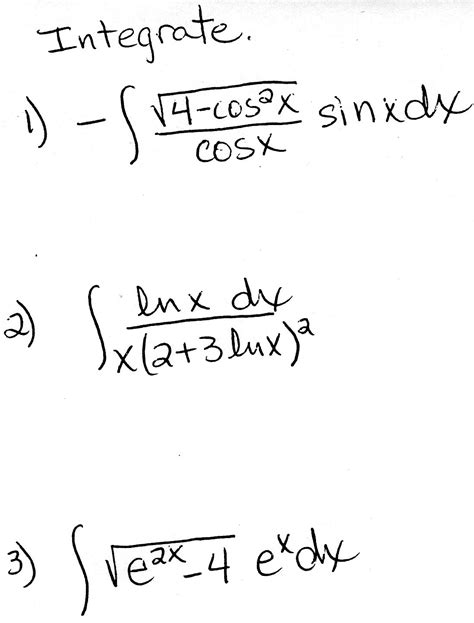 Integrate.
1) -∫ √(4-cos²x)/cosx sinxdx
2) ∫ lnx dx/x(2+3lnx)²
3) ∫ √(e²ˣ-4) eˣdx